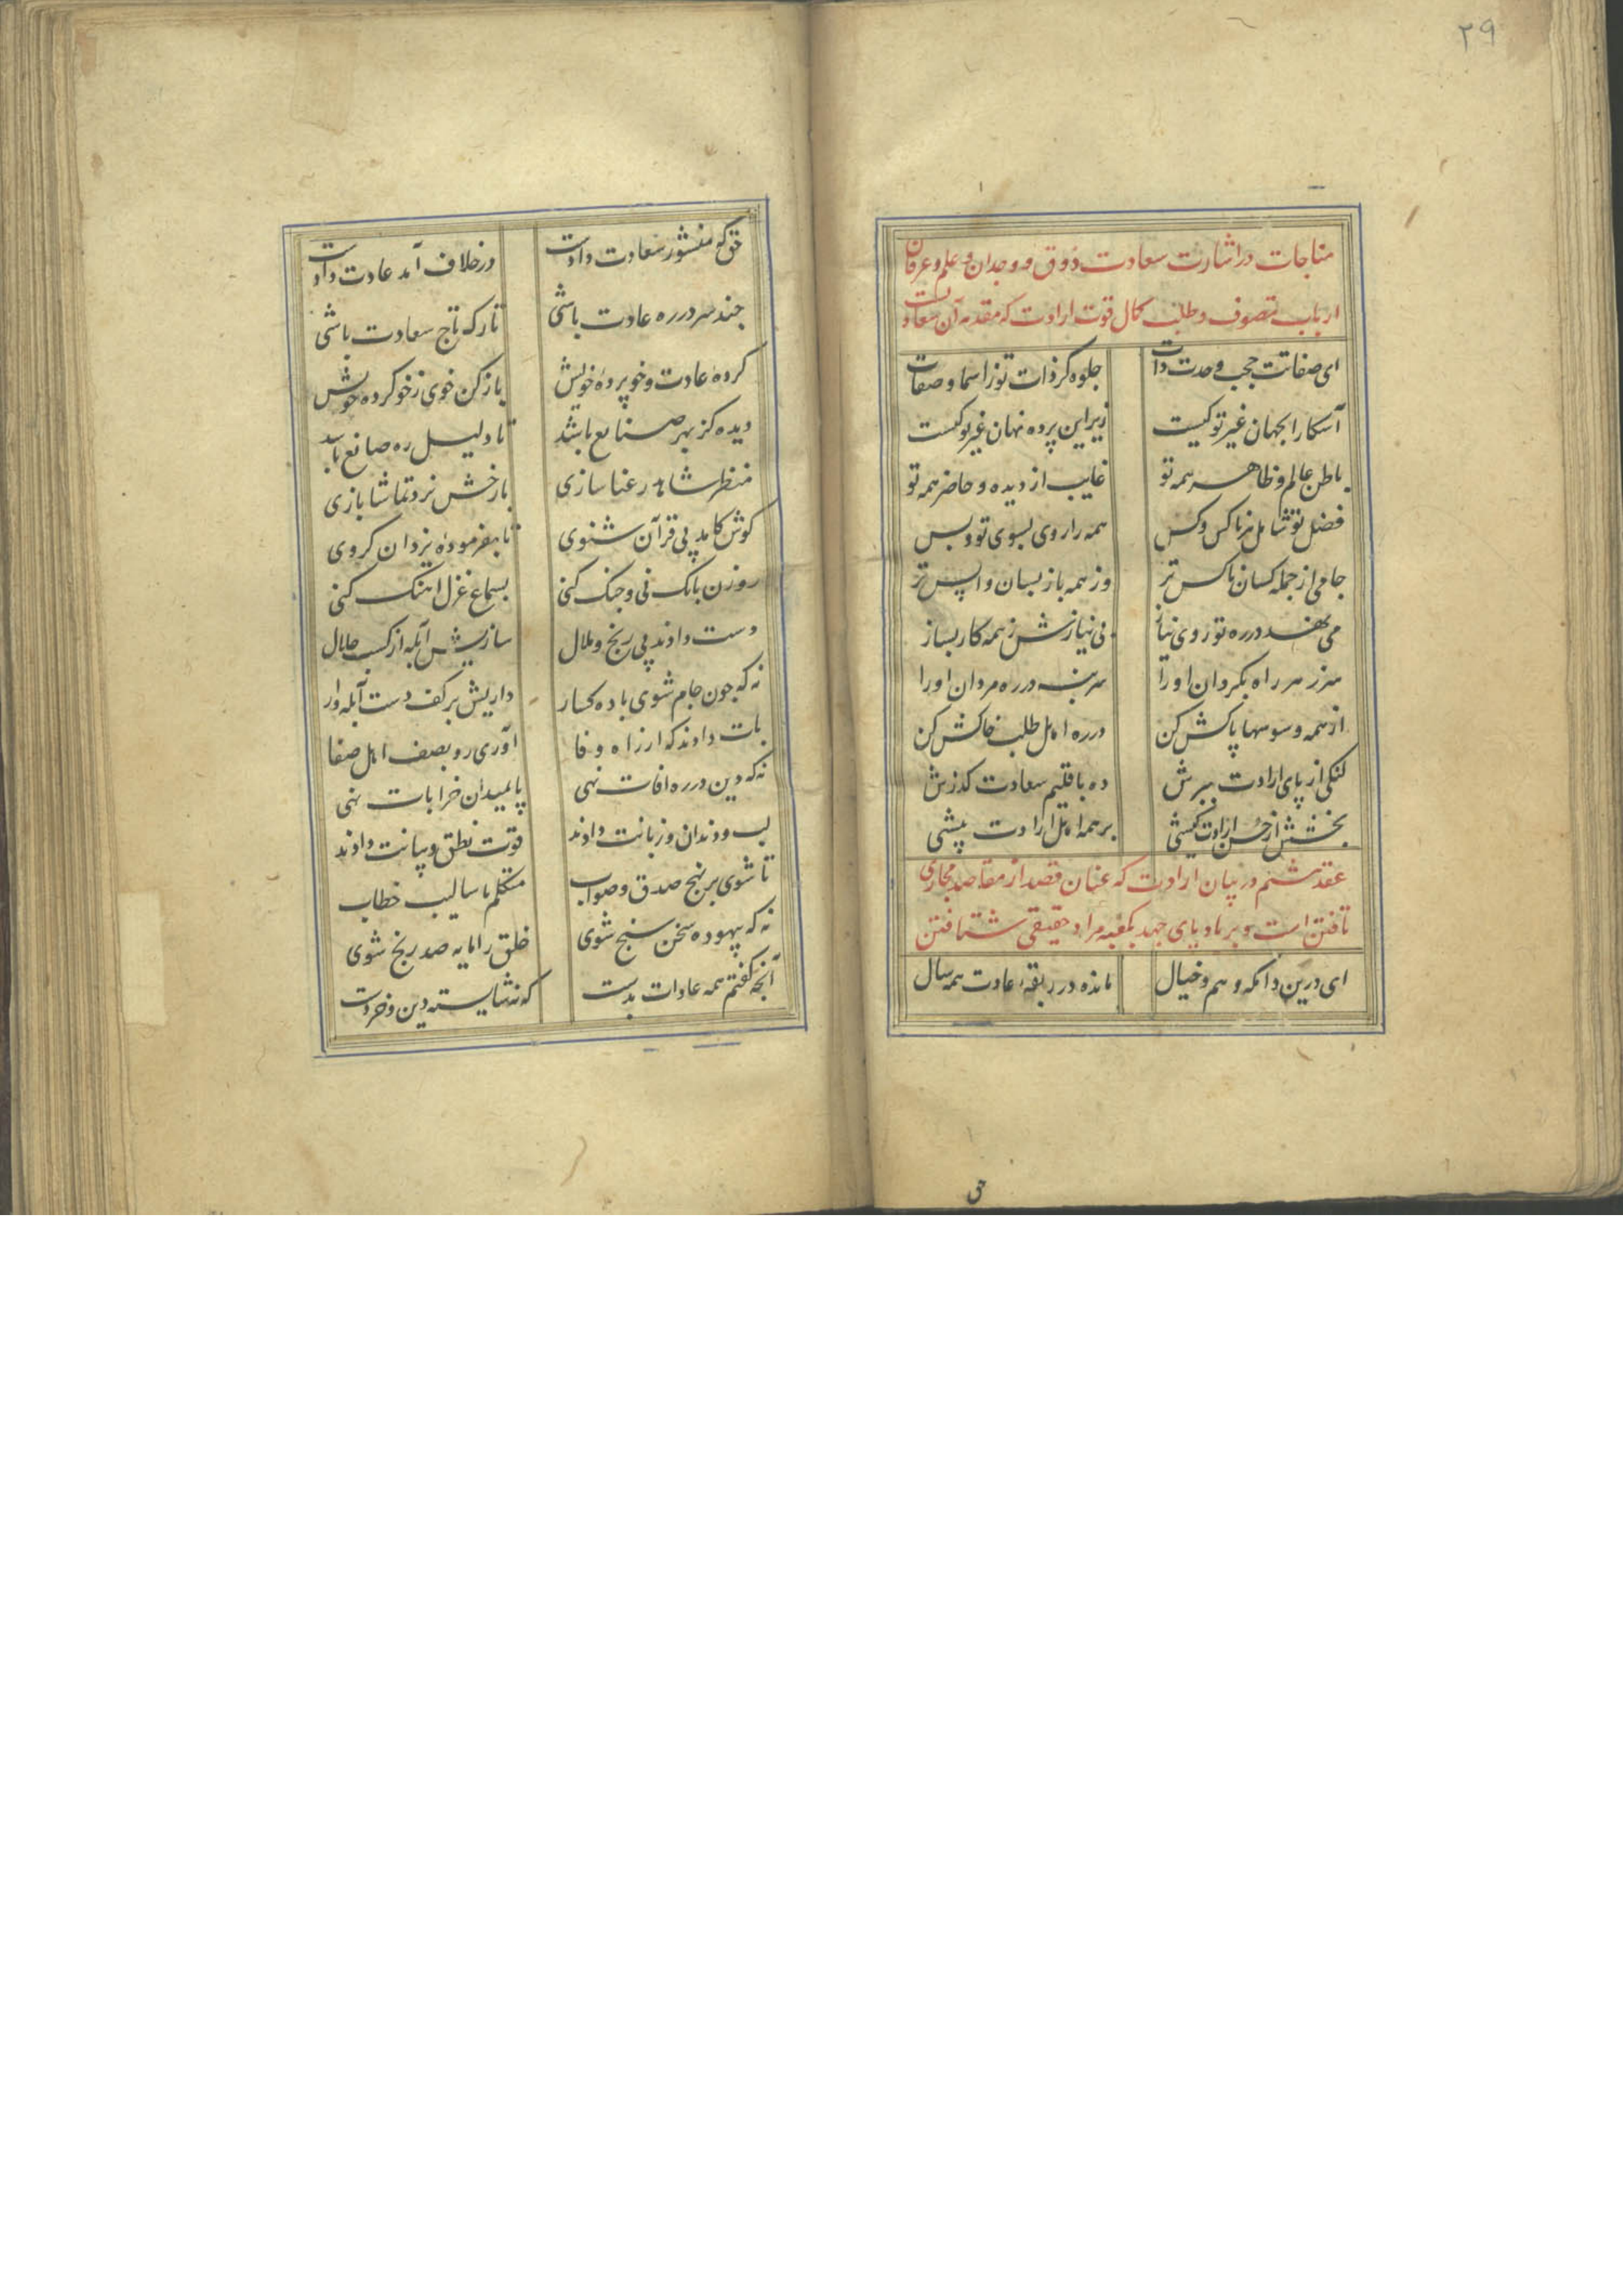 ۲۹
مناجات در اشارت سعادت ذوق و وجدان و علم و عرفان
ارباب تصوف و طلب کمال قوت ارادت که مقدمه آن سعادت
ای صفاتت حجب وحدت ذات جلوه گر ذات تو ز اسما و صفات
آشکارا بجهان غیر تو کیست زیر این پرده نهان غیر تو کیست
باطن عالم و ظاهر همه تو غایب از دیده و حاضر همه تو
فضل تو شامل هر ناکس و کس همه را روی بسوی تو و بس
جامی از جمله کسان ناکس تر وز همه باز پسان واپس تر
می نهد در ره تو روی نیاز بی نیازش ز همه کار بساز
سر ز هر راه بگردان او را سر بنه در ره مردان او را
از همه وسوسها پاکش کن در ره اهل طلب خاکش کن
لنگی از پای ارادت ببرش ده باقلیم سعادت گذرش
بخشش از حسن ارادت کیشی بر همه اهل ارادت پیشی
عقد ششم در بیان ارادت که عنان قصد از مقاصد مجازی
تافتن است و بر باد پای جهد بکعبه مراد حقیقی شتافتن
ای درین دامگه وهم و خیال مانده در ربقه عادت همه سال
حق
حق که منشور سعادت دادست در خلاف آمد عادت دادست
چند سر در ره عادت باشی تارک تاج سعادت باشی
کرده عادت و خو پرده خویش باز کن خوی ز خو کرده خویش
دیده کز بهر صنایع باشد تا دلیل ره صانع باشد
منظر شاهد رعنا سازی با رخش نرد تماشا بازی
گوش کامد پی قرآن شنوی تا بفرموده یزدان گروی
روزن بانگ نی و چنگ کنی بسماع غزل آهنگ کنی
دست دادند پی رنج و ملال سازیش آبله از کسب حلال
نه که چون جام شوی باده گسار داریش بر کف دست آبله وار
پات دادند که از راه وفا آوری رو بصف اهل صفا
نه که دین در ره آفات نهی پا بمیدان خرابات نهی
لب و دندان و زبانت دادند قوت نطق و بیانت دادند
تا شوی بر نهج صدق و صواب متکلم باسالیب خطاب
نه که بیهوده سخن سنج شوی خلق را مایه صد رنج شوی
آنچه گفتم همه عادات بدست که نه شایسته دین و خردست